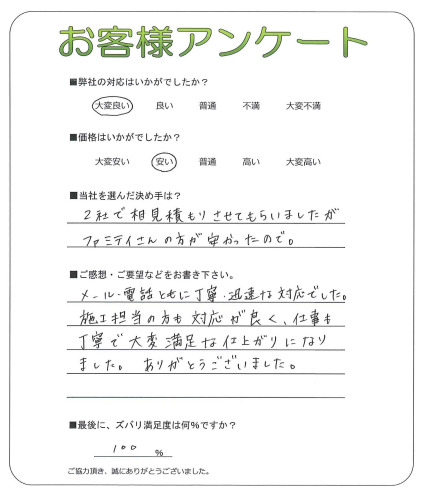 お客様アンケート
■弊社の対応はいかがでしたか?
大変良い 良い 普通 不満 大変不満
■価格はいかがでしたか?
大変安い 安い 普通 高い 大変高い
■当社を選んだ決め手は?
2社で相見積もりさせてもらいましたが
ファミテイさんの方が安かったので。
■ご感想・ご要望などをお書き下さい。
メール・電話ともに丁寧・迅速な対応でした。
施工担当の方も対応が良く、仕事も
丁寧で大変満足な仕上がりになり
ました。ありがとうございました。
■最後に、ズバリ満足度は何%ですか?
100 %
ご協力頂き、誠にありがとうございました。